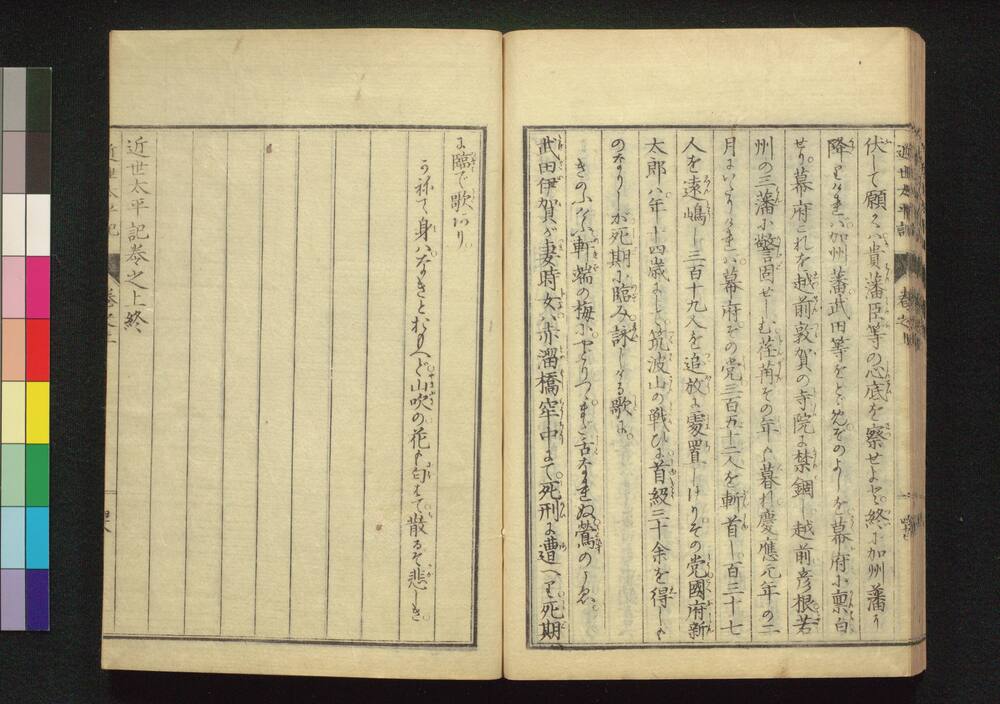 近世太平記 巻之上
伏して願くハ貴藩臣等の心底を察せよと終に加州藩に
降りけれバ加州藩武田等をとゞめそのよしを幕府に禀白
せり幕府これを越前敦賀の寺院に禁錮し越前彦根若
州の三藩に警固せしむ荏苒その年も暮れ慶應元年の二
月にいたりけれバ幕府その党三百五十二人を斬首し百三十七
人を遠嶋し三百十九人を追放に處置しけりその党國府新
太郎ハ年十四歳にして筑波山の戦ひに首級三十余を得しも
のなりしが死期に臨み詠じける歌に
きのふけふ軒端の梅にやどりつゝまだ舌なれぬ鶯のこゑ
武田伊賀が妻時女ハ赤溜橋窂中にて死刑に遭へり死期
に臨で歌あり
かねて身ハなきとおもへど山吹の花も匂はで散るぞ悲しき
近世太平記巻之上終
近世太平記 巻之上